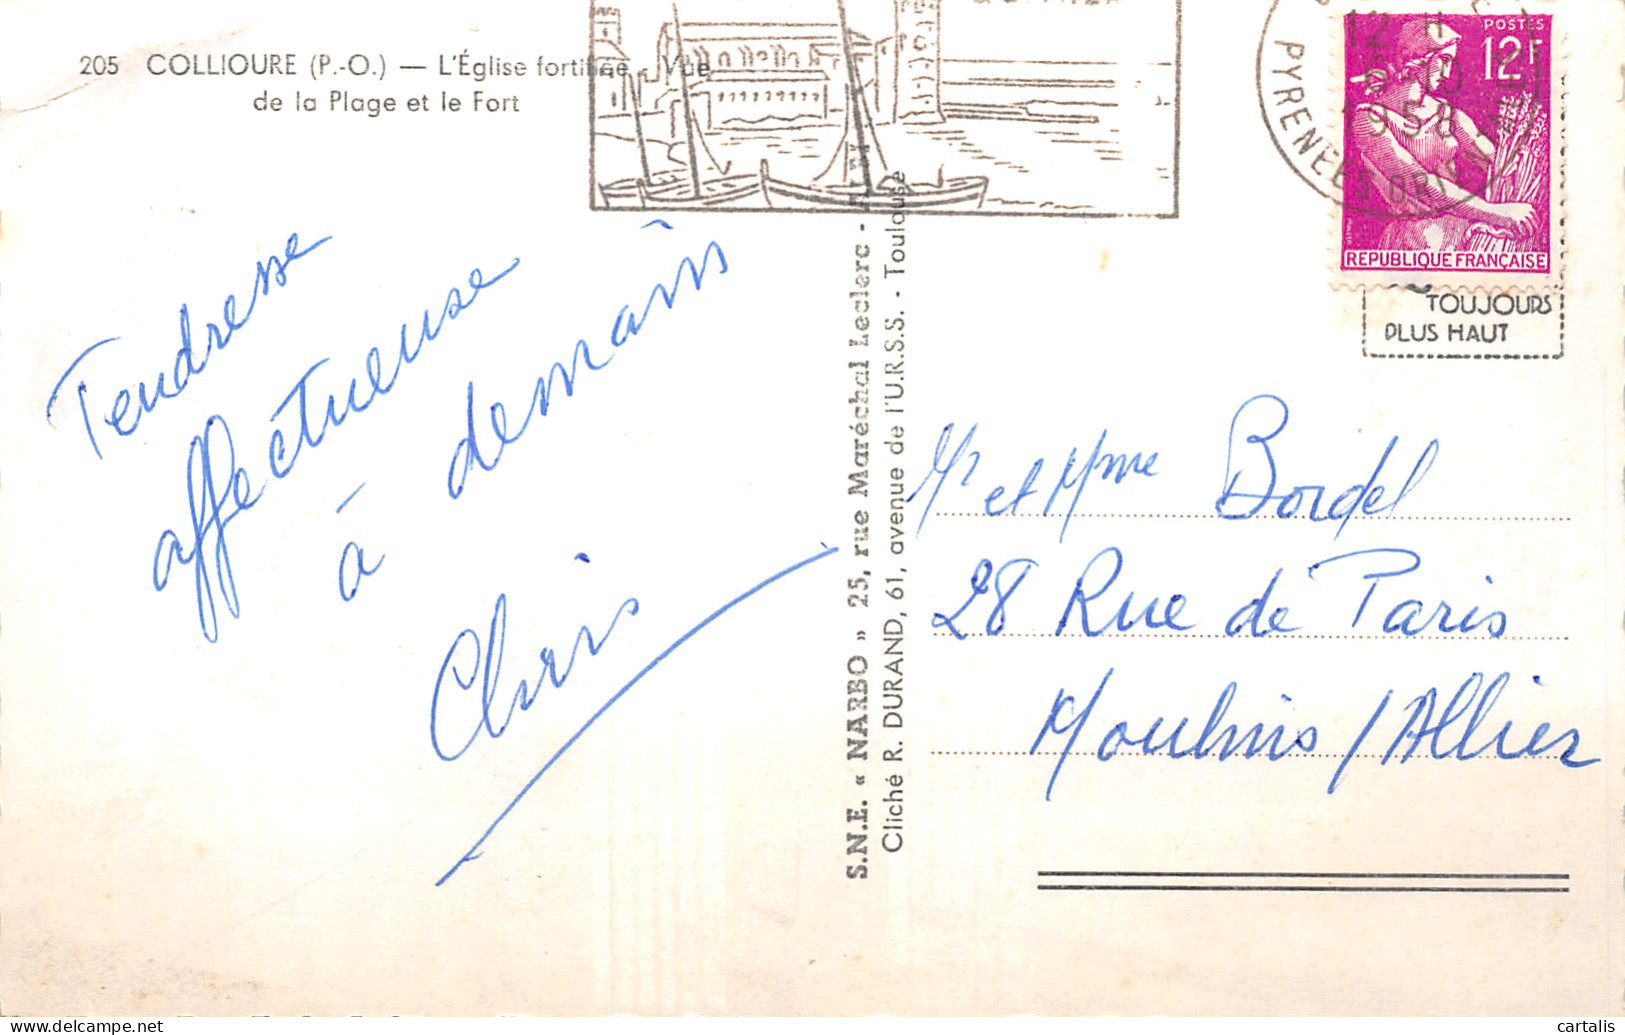 205 COLLIOURE (P.-O.) — L'Église fortifiée - Vue
de la Plage et le Fort
Tendresse
affectueuse
à demain
Chris
S.N.E. « NARBO » 25, rue Maréchal Leclerc -
Cliché R. DURAND, 61, avenue de l'U.R.S.S. - Toulouse
12 H
1958
PYRENEES ORIENTALES
POSTES
12F
REPUBLIQUE FRANÇAISE
TOUJOURS
PLUS HAUT
Mr et Mme Bordel
28 Rue de Paris
Moulins / Allier
cartalis